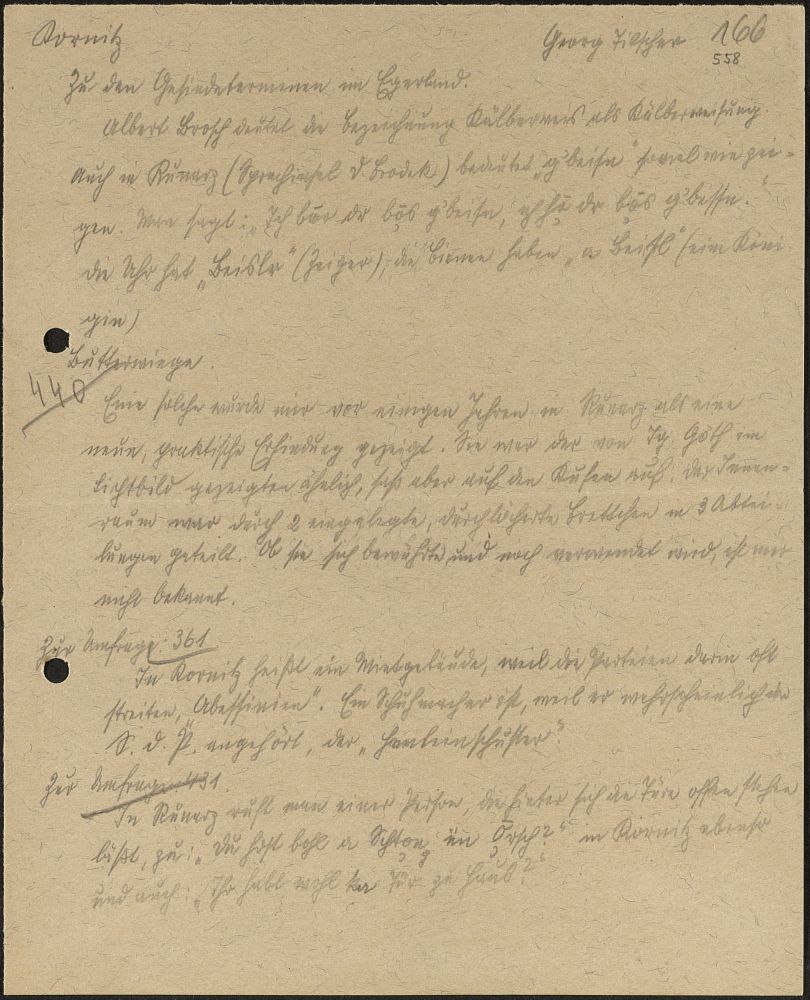 Kornitz Georg Tilscher 166
558
Zu den Gesindeterminen im Egerland.
Albert Brosch deutet die Bezeichnung Kälberweis als Kälberweisung.
Auch in Runarz (Sprachinsel D. Brodek) bedeutet „g'beisn" soviel wie zei-
gen. Man sagt: „Ich bār dr bōs g'beisn, dr bōs g'bessn."
die Uhr hat „Beislr" (Zeiger), die Bienen haben „a Beisl" (eine Köni-
gin)
Butterwiege.
440
Eine solche wurde mir vor einigen Jahren in Runarz als eine
neue, praktische Erfindung gezeigt. Sie war der von Ig. Göth im
Lichtbild gezeigten ähnlich, saß aber auf den Kufen auf. Der Innen-
raum war durch 2 eingelegte, durchlöcherte Brettchen in 3 Abtei-
lungen geteilt. Ob sie sich bewährte und noch verwendet wird, ist mir
nicht bekannt.
Zur Umfrage: 361
In Kornitz heißt ein Mietgebäude, weil die Parteien darin oft
streiten, „Abessinien". Ein Schuhmacher ist, weil er wahrscheinlich der
S. d. P. angehört, der „Henleinschuster".
Zur Umfrage 431.
In Runarz ruft man einer Person, die hinter sich die Türe offen stehen
läßt, zu: „Du host bohl a Schtong ün Orsch?" in Kornitz ebenso
und auch: „Ihr habt wohl ka Tür zu Haus?"